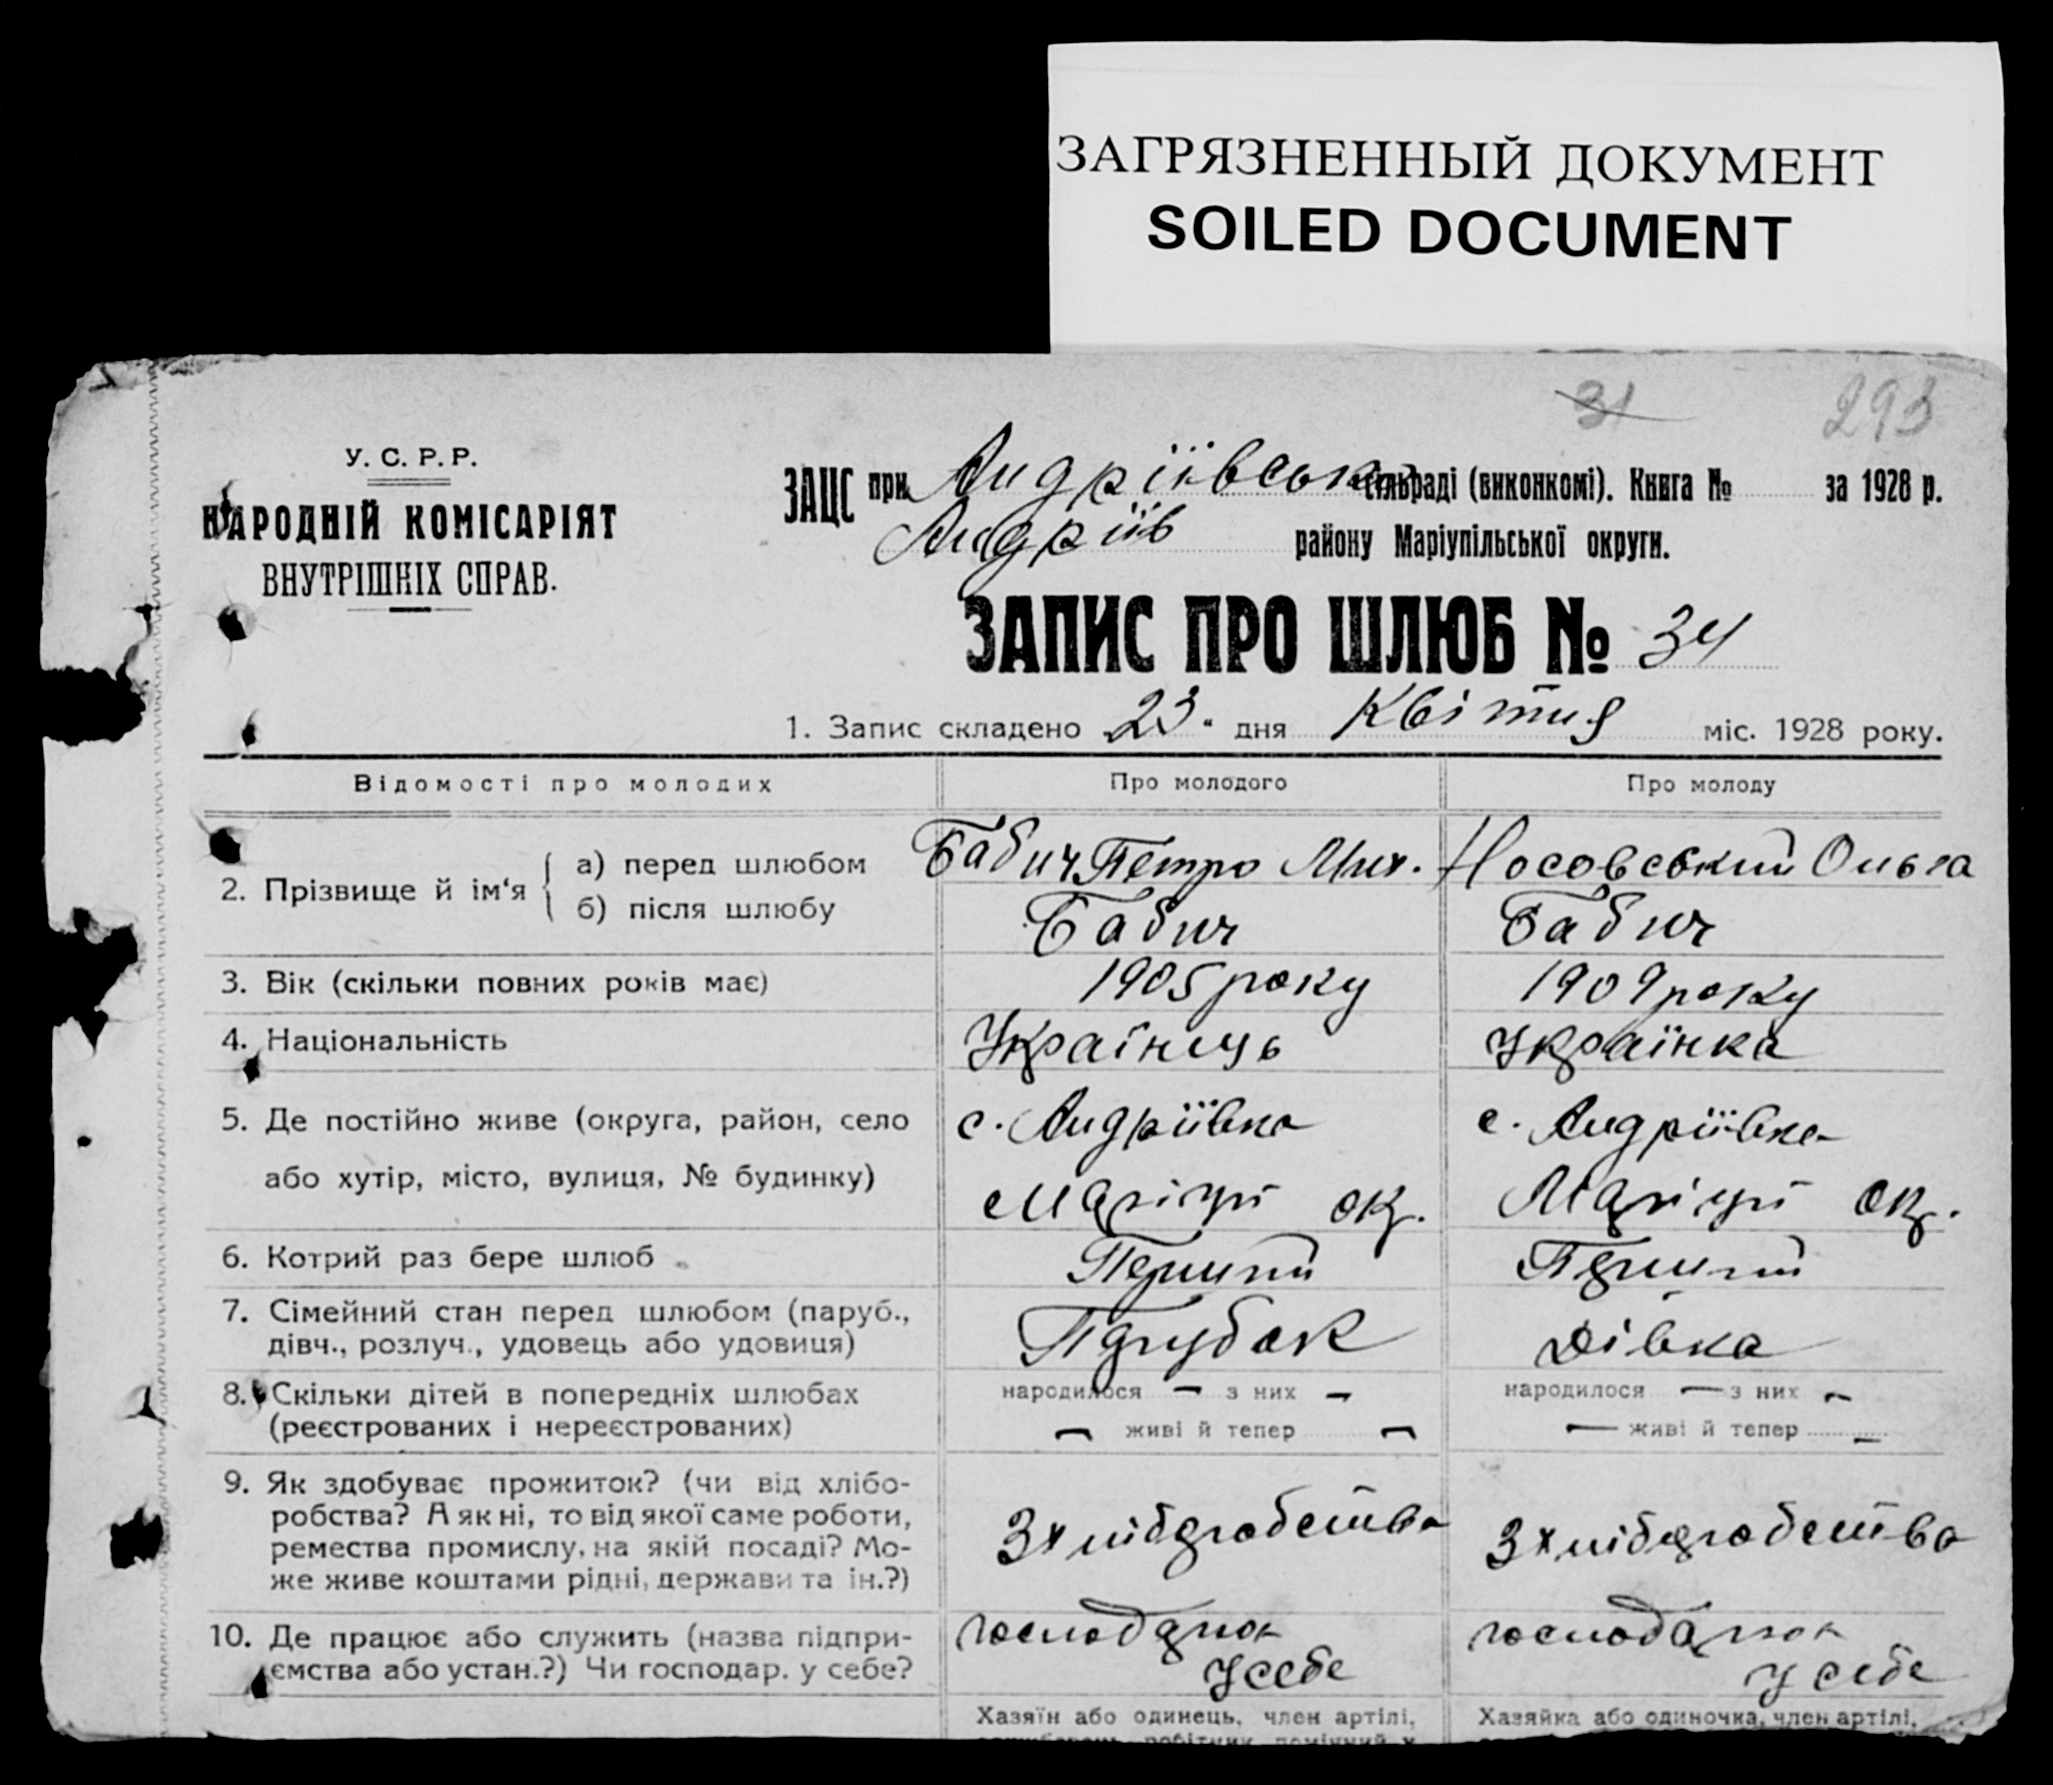 ЗАГРЯЗНЕННЫЙ ДОКУМЕНТ
SOILED DOCUMENT
31 293
У. С. Р. Р.
НАРОДНІЙ КОМІСАРІЯТ
ВНУТРІШНІХ СПРАВ.
ЗАЦС при Андріївськ сільраді (виконкомі). Книга № за 1928 р.
Андріїв району Маріупільської округи.
ЗАПИС ПРО ШЛЮБ № 34
1. Запис складено 23 " дня Квітня міс. 1928 року.
Відомості про молодих Про молодого Про молоду
2. Прізвище й ім‘я { а) перед шлюбом Бабич Петро Мих. Носовський Ольга
б) після шлюбу Бабич Бабич
3. Вік (скільки повних років має) 1905 року 1909 року
4. Національність Українець Українка
5. Де постійно живе (округа, район, село с. Андріївка с. Андріївка
або хутір, місто, вулиця, № будинку) Маріуп ок. Маріуп ок.
6. Котрий раз бере шлюб Перший Перший
7. Сімейний стан перед шлюбом (паруб., Парубок Дівка
дівч., розлуч., удовець або удовиця)
8. Скільки дітей в попередніх шлюбах народилося — з них — народилося — з них —
(реєстрованих і нереєстрованих) — живі й тепер — — живі й тепер —
9. Як здобуває прожиток? (чи від хлібо-
робства? А як ні, то від якої саме роботи, З хліборобства З хліборобства
ремества промислу, на якій посаді? Мо-
же живе коштами рідні, держави та ін.?)
10. Де працює або служить (назва підпри- господарюк господарюк
ємства або устан.?) Чи господар. у себе? у себе у себе
Хазяїн або одинець, член артілі, Хазяйка або одиночка, член артілі,
робітник помічний х